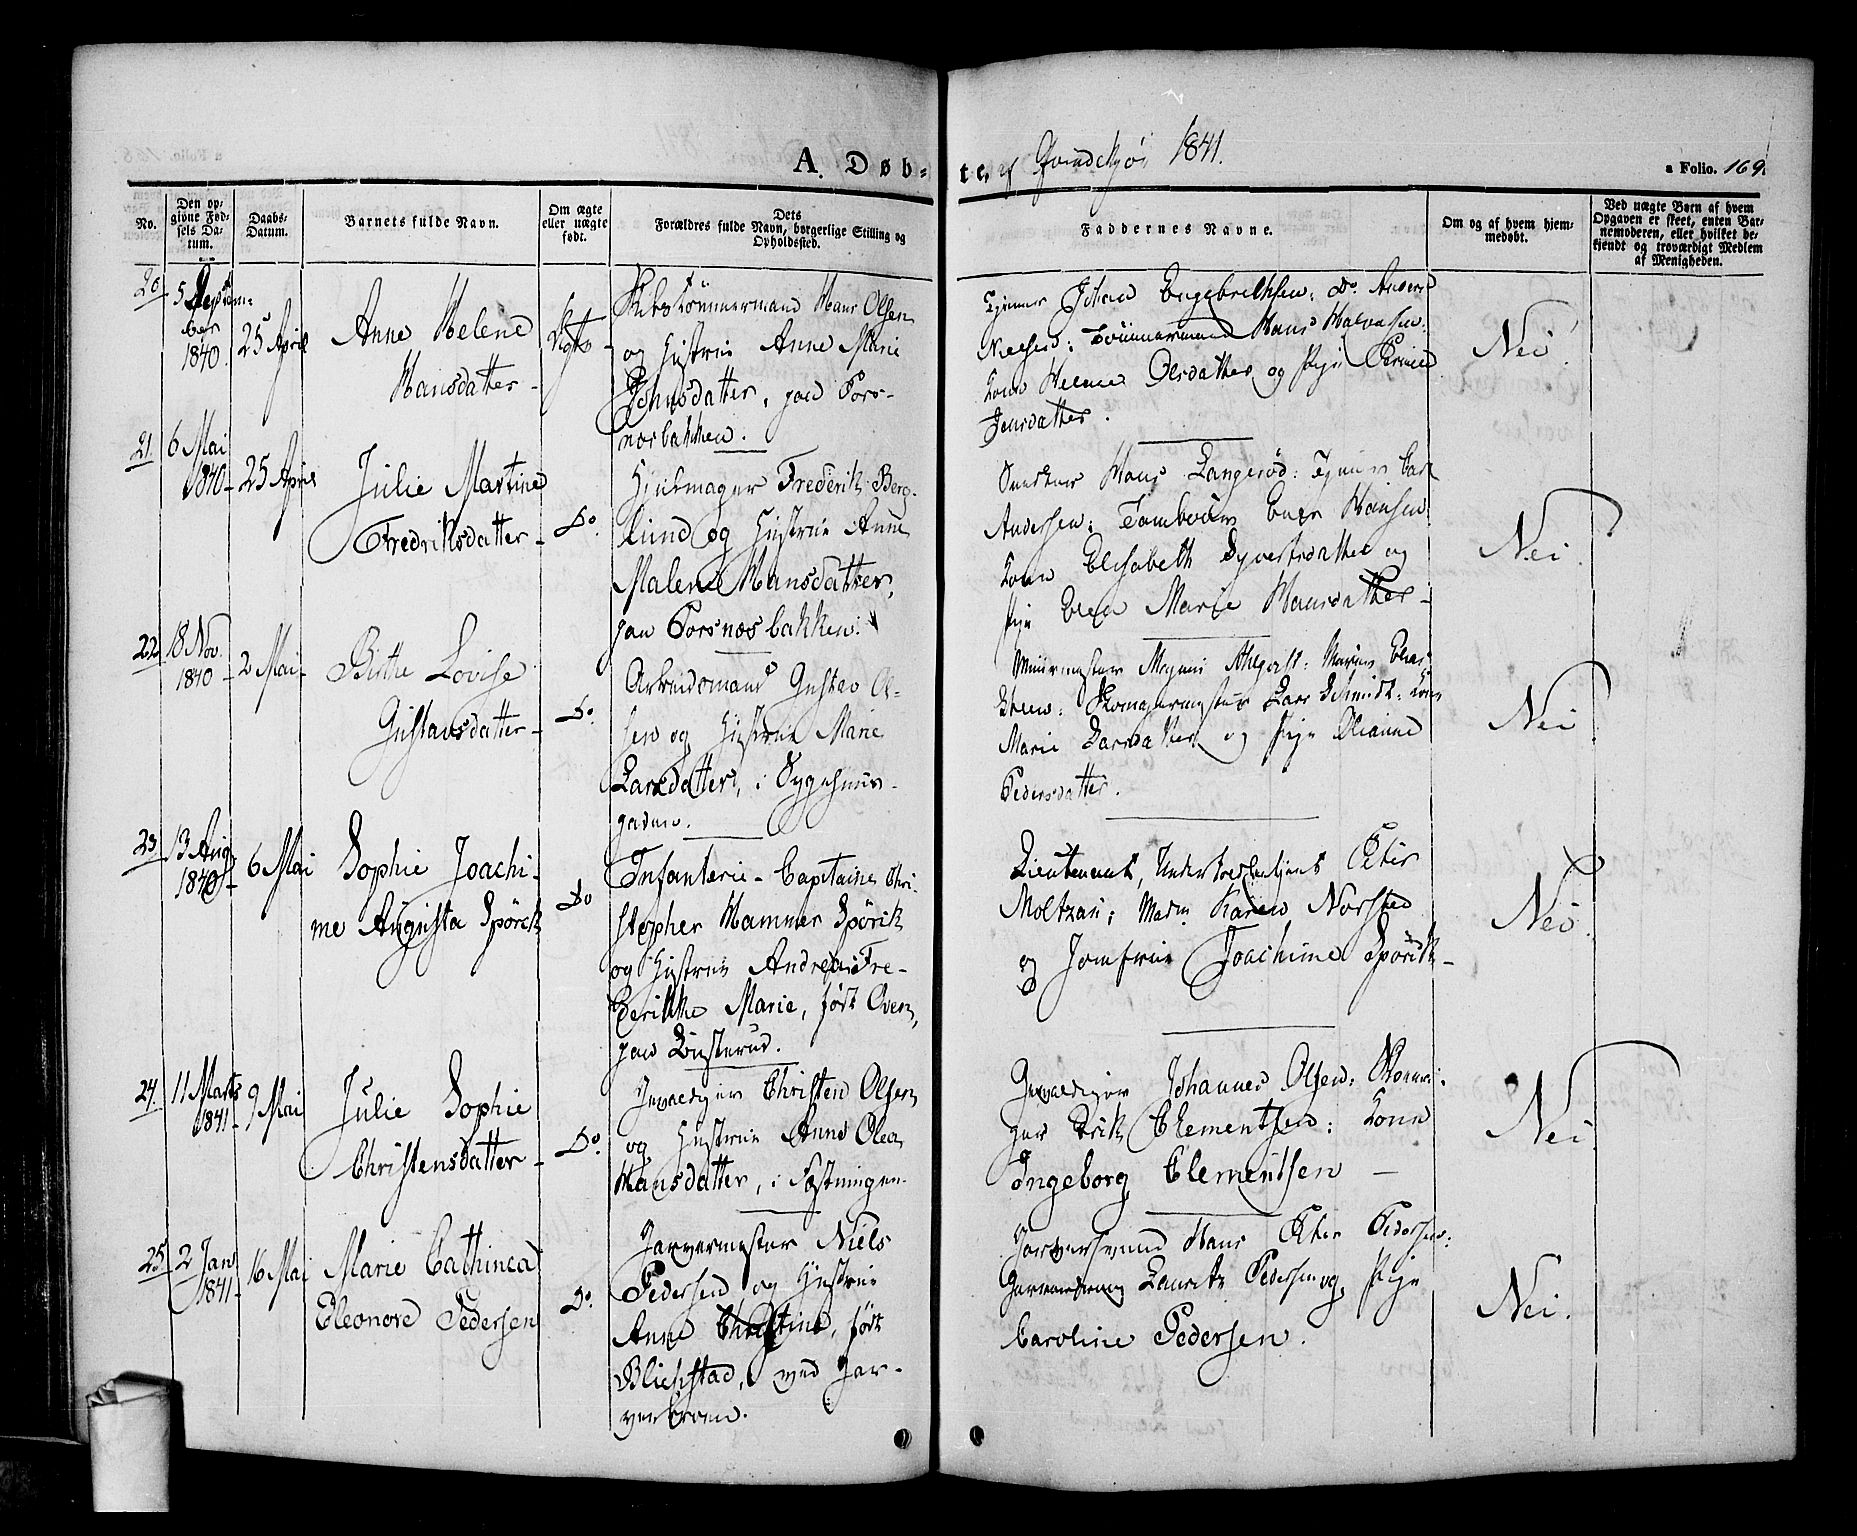 A. Døb-
te, af Qvindekjøn 1841.
a Folio. 169.
No.
Den op-
givne Fød-
sels Da-
tum.
Daabs-
Datum.
Barnets fulde Navn.
Om ægte
eller uægte
født.
Dets
Forældres fulde Navn, borgerlige Stilling og
Opholdssted.
Faddernes Navne.
Om og af hvem hjem-
medøbt.
Ved uægte Børn af hvem
Opgaven er skeet, enten Bar-
nemoderen, eller hvilket be-
kjendt og troværdigt Medlem
af Menigheden.
20.
5 Septem-
ber
1840.
25 April
Anne Helene
Hansdatter -
Ægte
Skibstømmermand Hans Olsen
og Hustrue Anne Marie
Johnsdatter, paa Fors-
næsbakken.
Johan Engebrethsen: Do. Anders
Nielsen: Tømmermand Hans Halvorsen:
Kone Helene Olsdatter og Pige
Jensdatter.
Nei.
21.
6 Mai
1840-
25 April
Julie Martine
Fredriksdatter -
Do.
Hjulmager Frederik Berg-
lund og Hustrue Anne
Malene Hansdatter,
paa Forsnæsbakken.
Snedker Hans Langerød:
Andersen: Tambour Hansen
Kone Elisabeth Syvertsdatter og
Pige Elen Marie Hansdatter -
Nei.
22.
18 Nov.
1840-
2 Mai-
Birthe Lovise
Gustavsdatter -
Do.
Arbeidsmand Gustav Ol-
sen og Hustrue Marie
Larsdatter, i Sygehuus-
gaden.
Muurmester Ahlqvist:
Steen: Skomagermester Lars Schmidt: Kone
Marie Larsdatter og Pige Oleanne
Pedersdatter.
Nei
23.
13 Aug.
1840-
6 Mai
Sophie Joachi-
me Augusta Spørck
Do
Infanterie-Capitaine Chri-
stopher Hammer Spørck
og Hustrue Andrea Fre-
derikke Marie, født Oven,
paa Lusterud.
Lieutenant, Peter
Moltzau: Madm Karen Norsted
og Jomfrue Joachime Spørck -
Nei.
24.
11 Marts
1841-
9 Mai
Julie Sophie
Christensdatter -
Do.
Christen Olsen
og Hustrue Anne Olea
Hansdatter, i Fæstningen.
Johannes Olsen: Skoma-
ger Erik Clementsen: Kone
Ingeborg Clementsen -
Nei
25.
2 Jan
1841-
16 Mai
Marie Cathinca
Eleonore Pedersen
Do.
Farvermester Niels
Pedersen og Hustrue
Anne Christine, født
Blichstad, ved Far-
verbroen.
Farversvend Hans Peter Pedersen:
Lauritz Pedersen og Pige
Caroline Pedersen.
Nei.